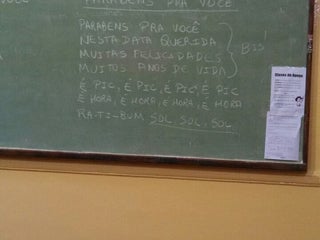 PARABENS PRA VOCÊ
PARABENS PRA VOCÊ
NESTA DATA QUERIDA
MUITAS FELICIDADES
MUITOS ANOS DE VIDA
BIS
É PIC, É PIC, É PIC, É PIC
É HORA, É HORA, É HORA, É HORA
RA-TI-BUM SOL SOL SOL